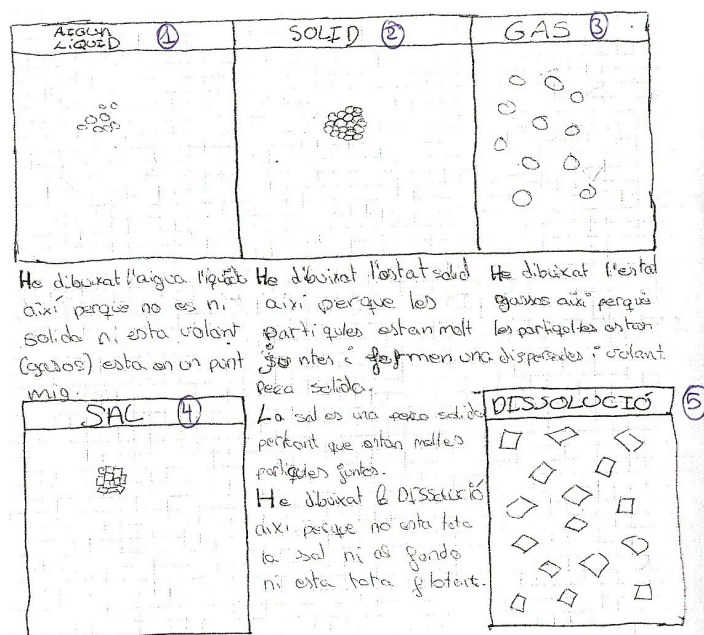 AIGUA
LÍQUID ①
SOLID ②
GAS ③
He dibuixat l'aigua líquida
així perque no es ni
solida ni esta volant
(gasos) esta en un punt
mig.
He dibuixat l'estat solid
així perque les
partiqules estan molt
juntes i formen una
peça solida.
He dibuixat l'estat
gassos així perquè
les partiqules estan
disperades i volant.
SAL ④
La sal es una peça solida
pertant que estan moltes
partiqules juntes.
He dibuixat la DISSOLUCIÓ
així perque no esta tota
la sal ni al fondo
ni esta tota flotant.
DISSOLUCIÓ ⑤